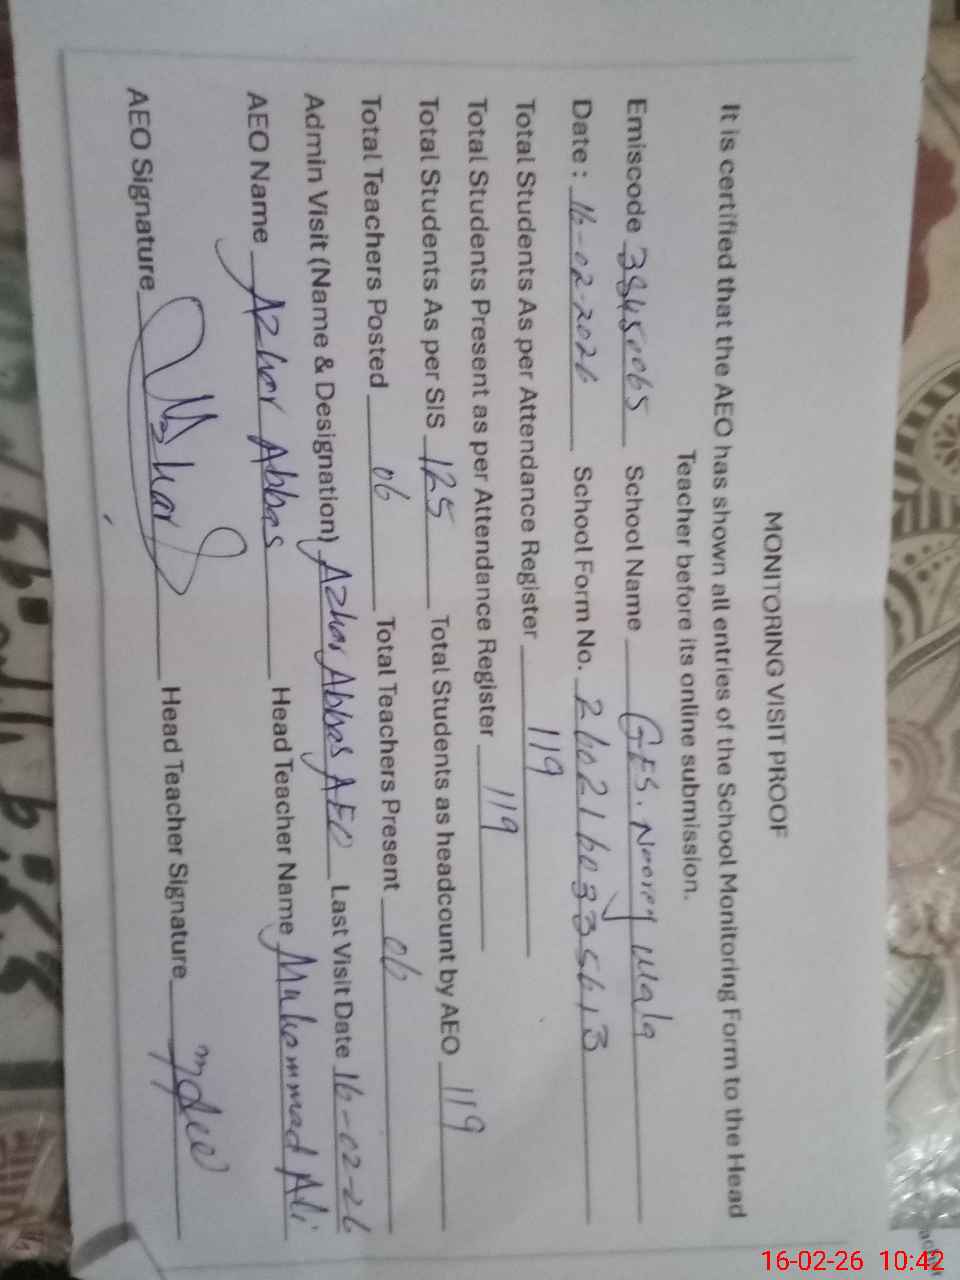 MONITORING VISIT PROOF
It is certified that the AEO has shown all entries of the School Monitoring Form to the Head
Teacher before its online submission.
Emiscode 38450065 School Name GES. Noorey Wala
Date: 16-02-2026 School Form No. 2602160335613
Total Students As per Attendance Register 119
Total Students Present as per Attendance Register 119
Total Students As per SIS 125 Total Students as headcount by AEO 119
Total Teachers Posted 06 Total Teachers Present 06
Admin Visit (Name & Designation) Azhar Abbas AEO Last Visit Date 16-02-26
AEO Name Azhar Abbas Head Teacher Name Muhammad Ali
AEO Signature Azhar Head Teacher Signature
16-02-26 10:42